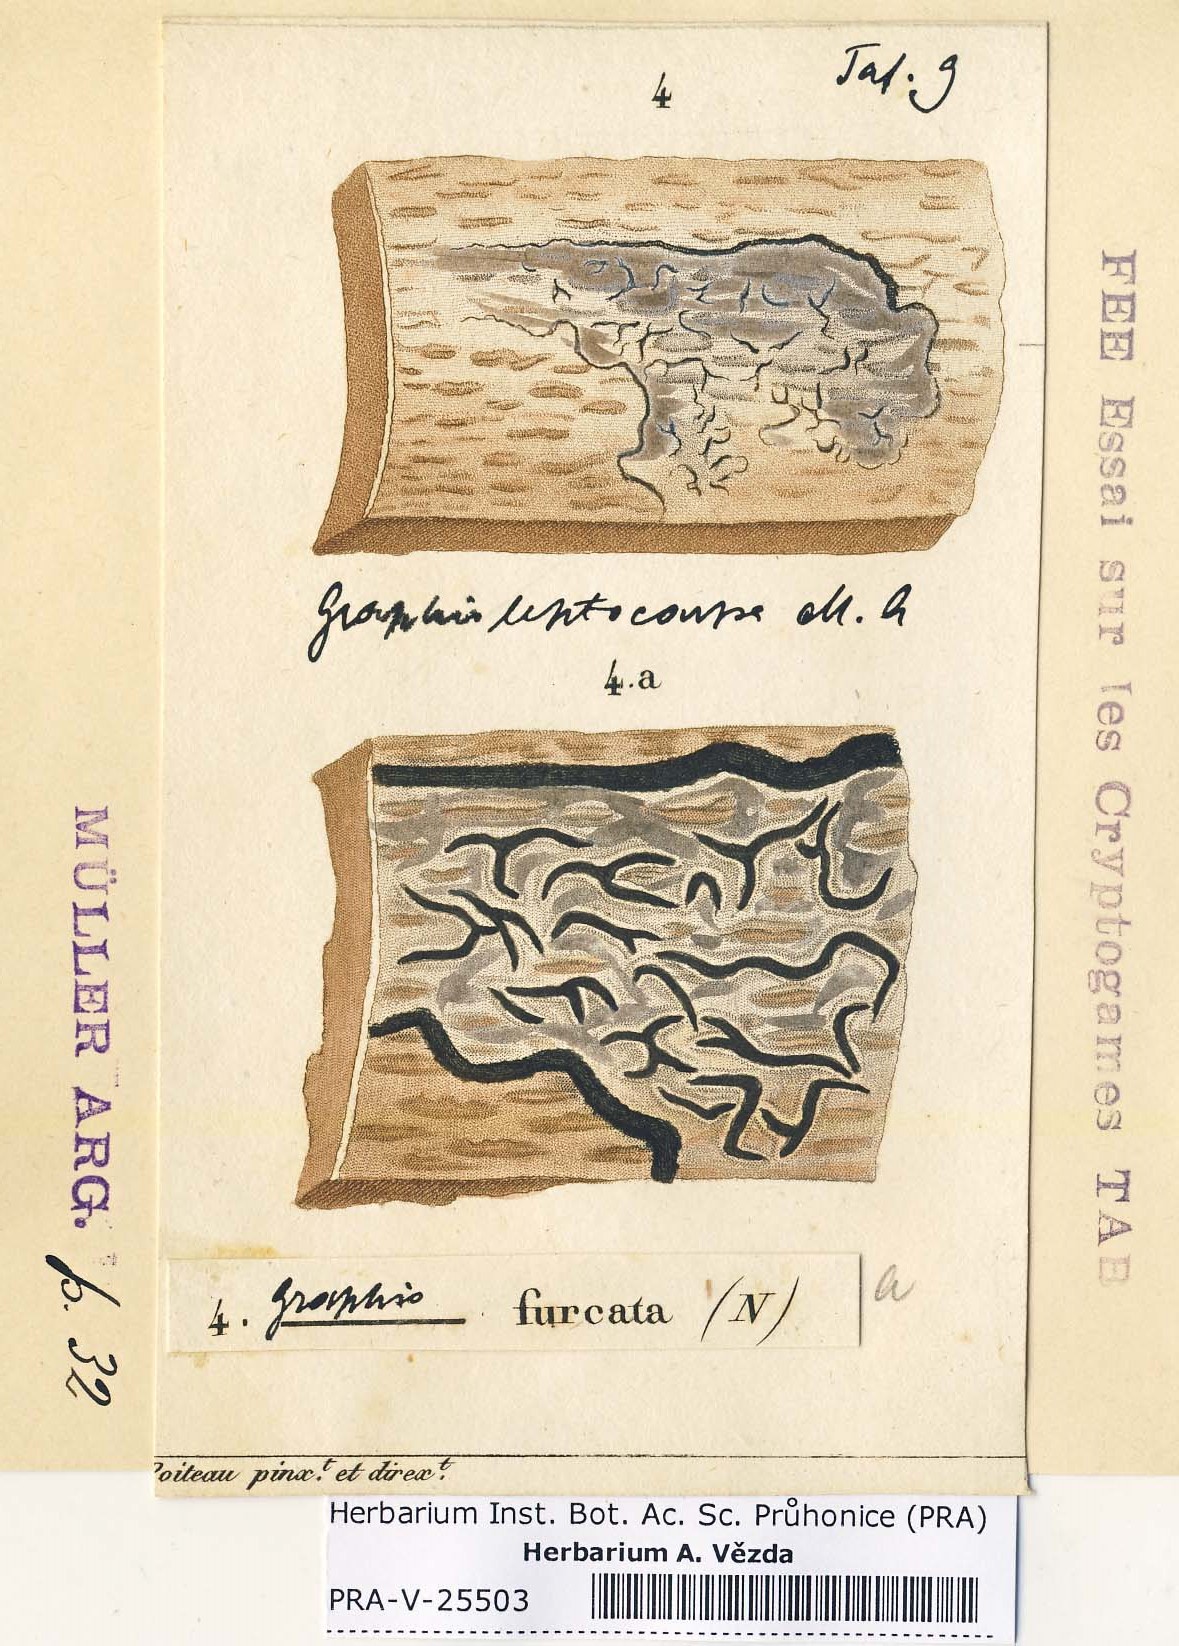 4
Taf. 9
Graphis leptocarpa M. A
4.a
4. Graphis furcata (N)
a
Poiteau pinx.t et direx.t
FEE Essai sur les Cryptogames TAB
MÜLLER ARG. p. 32
Herbarium Inst. Bot. Ac. Sc. Průhonice (PRA)
Herbarium A. Vězda
PRA-V-25503